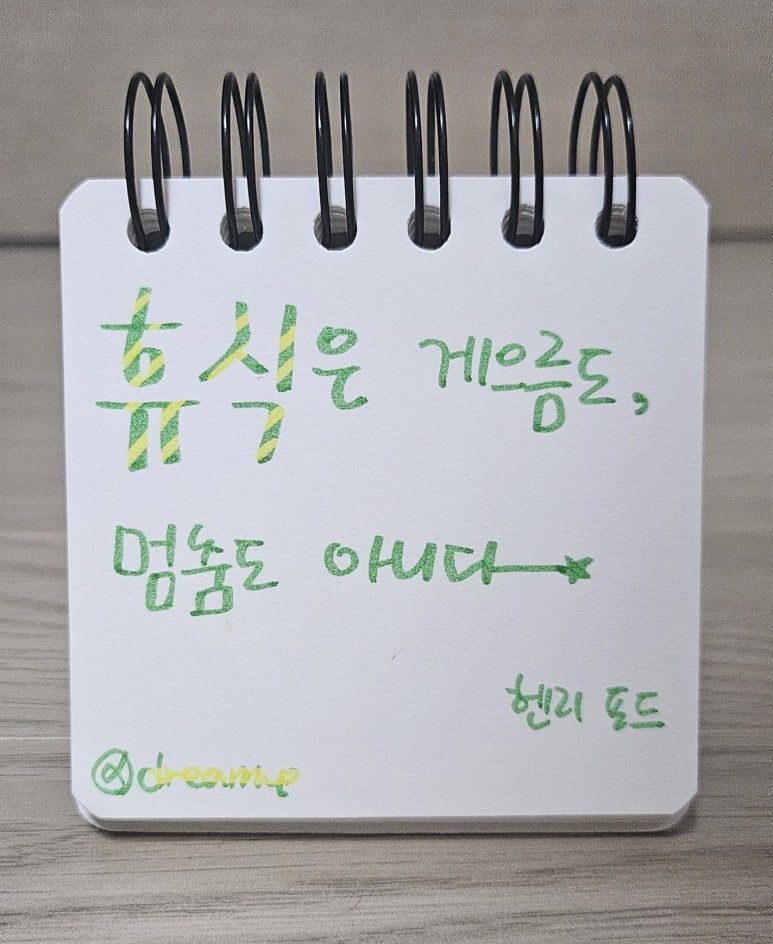 휴식은 게으름도,
멈춤도 아니다
헨리 포드
@dreamye